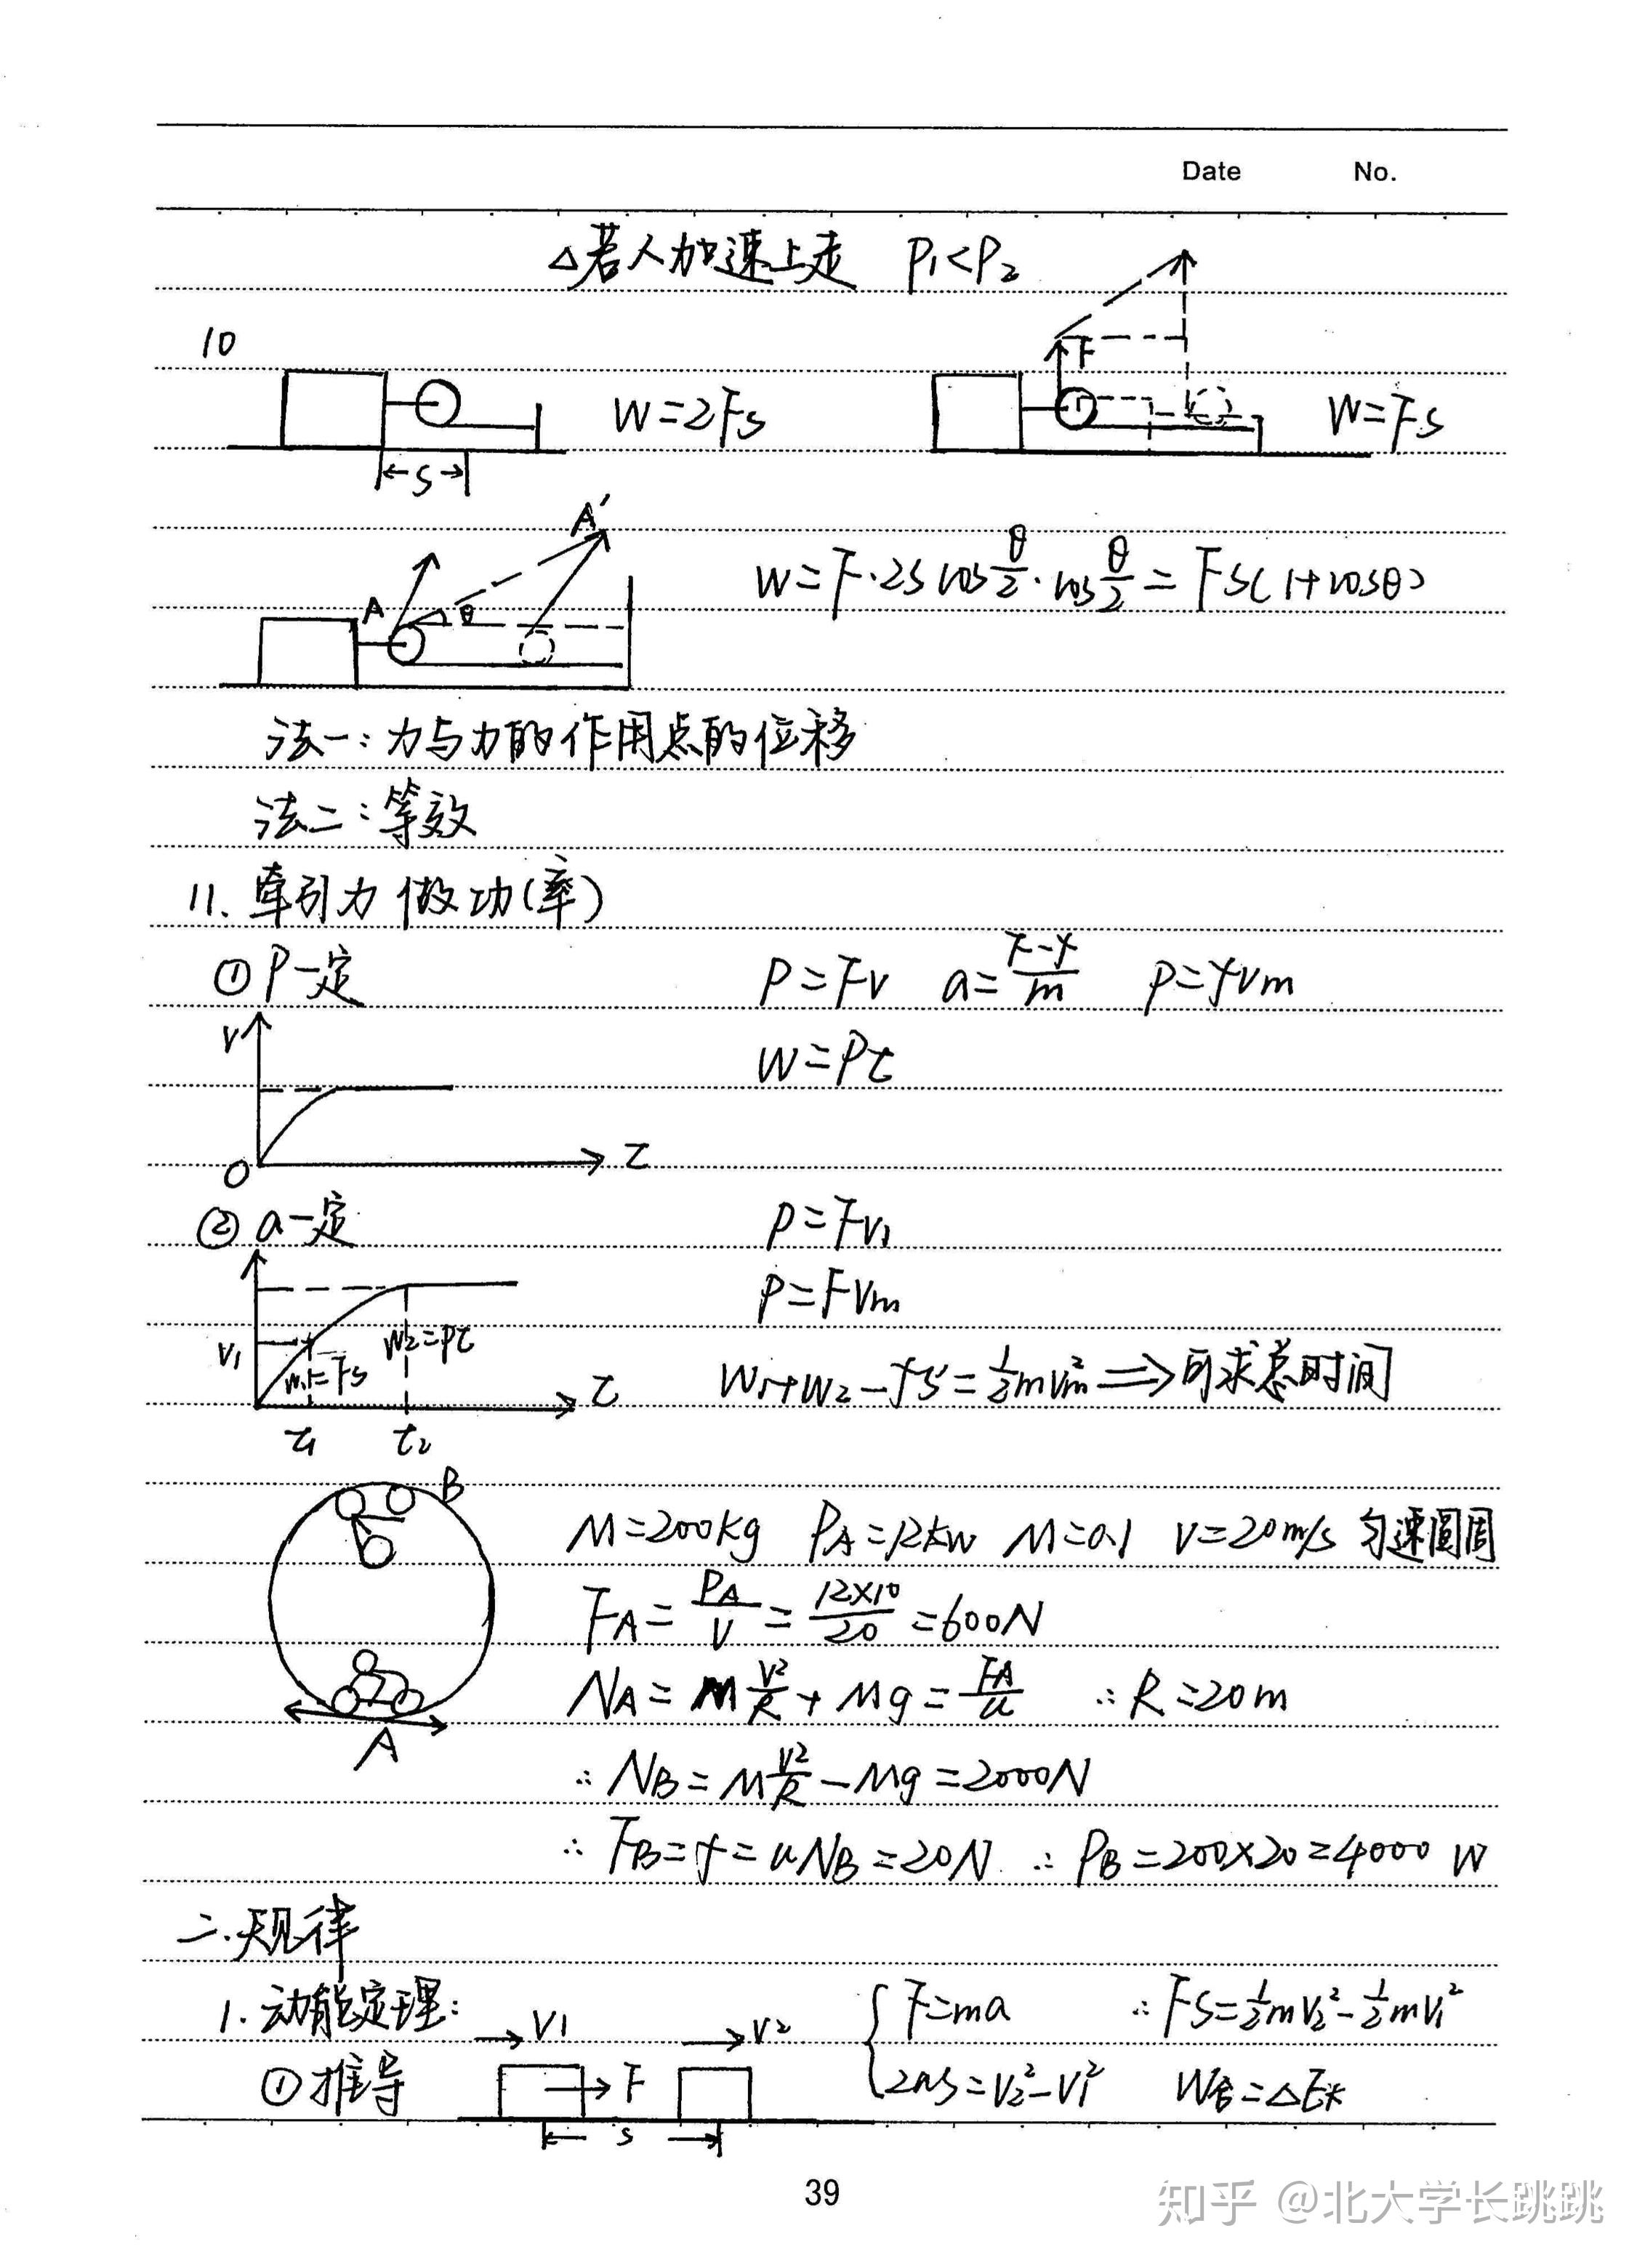 Date No.
△若人加速上走 P₁<P₂
10
F
W=2Fs
W=Fs
←S→
A'
A
θ
W=F·2S cos θ/2 · cos θ/2 = FS(1+cosθ)
法一:力与力的作用点的位移
法二:等效
11. 牵引力做功(率)
①P一定 P=Fv a=(F-f)/m P=fvm
V
W=Pt
O t
②a一定 P=Fv₁
P=Fvm
V₁ W₁=Fs W₂=Pt
W₁+W₂-fs'=½mvm² ⟹可求总时间
t
t₁ t₂
B
M=200kg PA=12kw M=0.1 V=20m/s 匀速圆周
FA=PA/V=12×10/20=600N
NA=M V²/R + Mg = FA/u ∴R=20m
A
∴NB=M V²/R - Mg=2000N
∴FB=f=uNB=20N ∴PB=200×20=4000 W
二.规律
1.动能定理:
V1 V2
{F=ma ∴FS=½mV₂²-½mV₁²
①推导
F
2as=V₂²-V₁² W合=△Ek
←s→
39
知乎 @北大学长跳跳